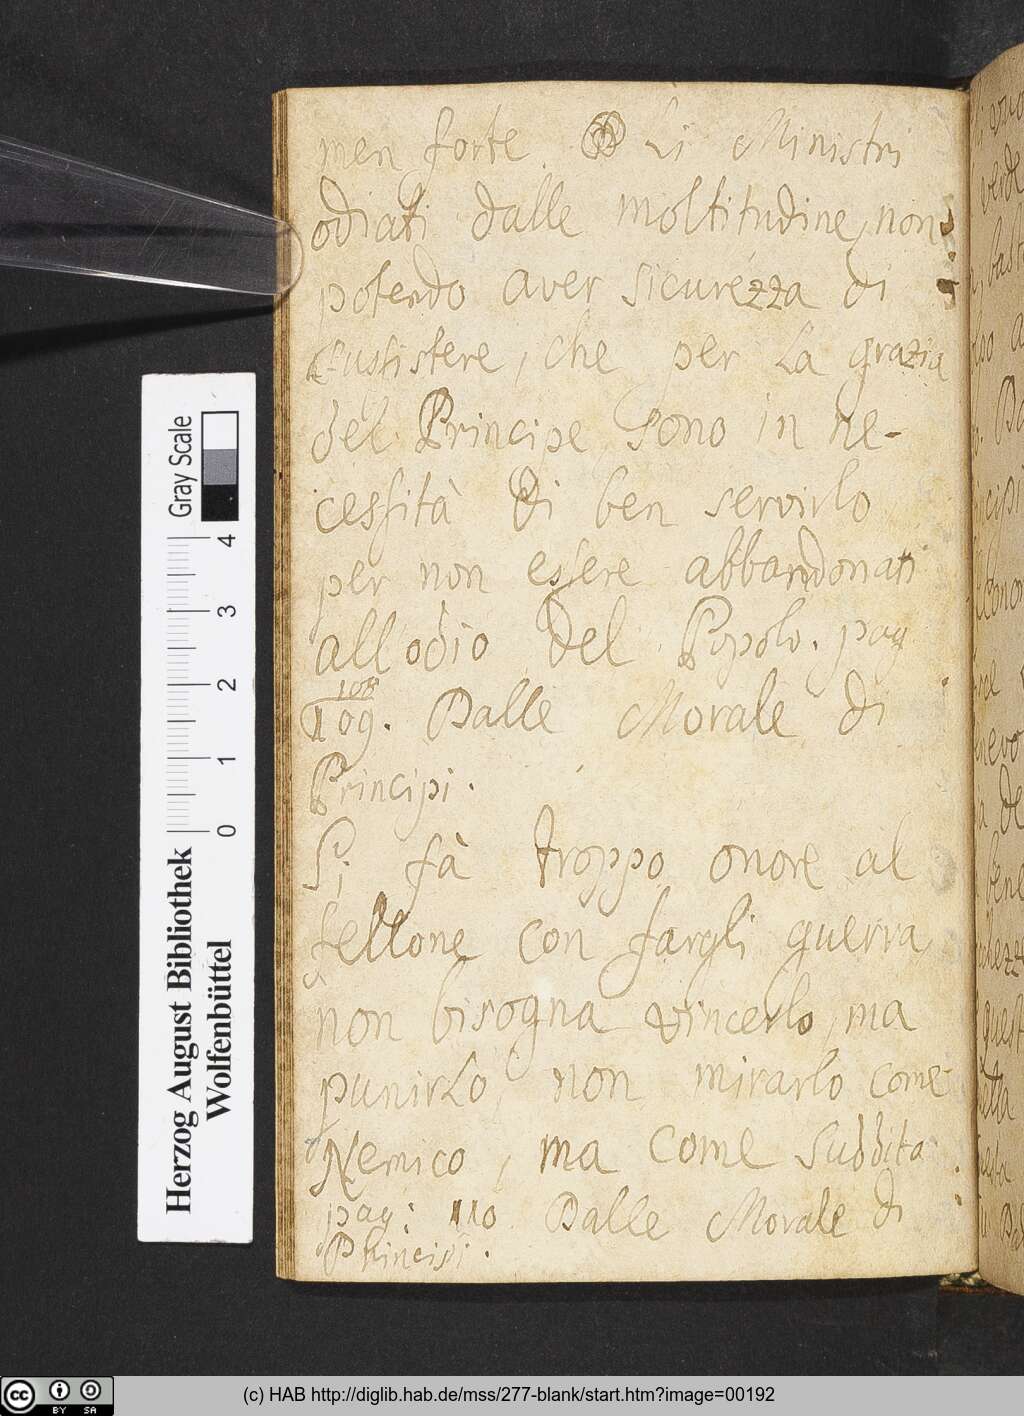 men forte. Li Ministri
odiati dalle moltitudine, non
potendo aver sicurezza di
sustistere, che per la grazia
del Principe sono in ne-
cessità di ben servirlo
per non essere abbandonati
all odio del Popolo. pag
108
109. Dalle Morale di
Principi.
Si fà troppo onore al
fellone con fargli guerra
non bisogna vincerlo, ma
punirlo, non mirarlo come
Nemico, ma come suddita.
pag: 110. Dalle Morale di
Principi.
Gray Scale
0 1 2 3 4
Herzog August Bibliothek
Wolfenbüttel
(c) HAB http://diglib.hab.de/mss/277-blank/start.htm?image=00192
cc BY SA